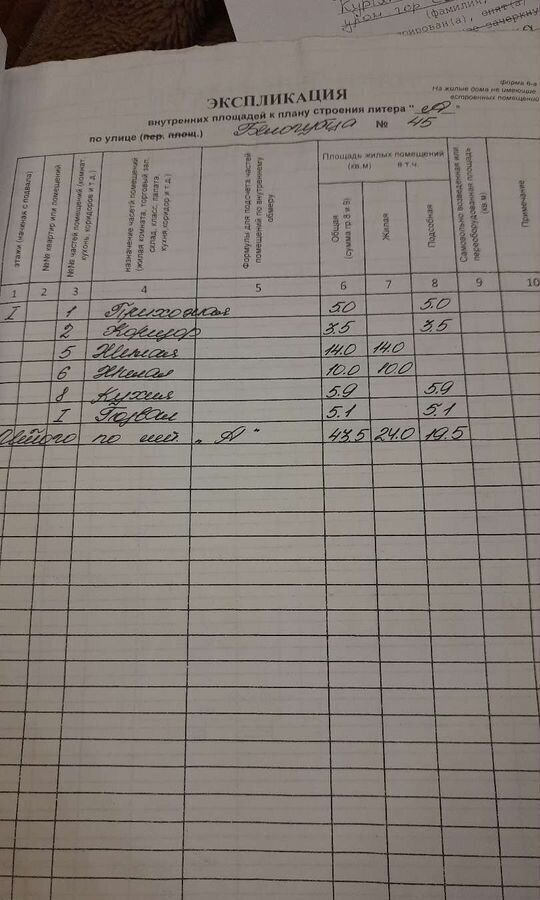 (фамилия,
форма 6-а
На жилые дома не имеющие
встроенных помещений
ЭКСПЛИКАЦИЯ
внутренних площадей к плану строения литера "А"
по улице (пер. площ.) № 45
этажи (начиная с подвала)
№№ квартир или помещений
№№ частей помещений (комнат кухонь, коридоров и т.д.)
назначение частей помещений (жилая комната, торговый зал, склад, класс, палата, кухня, коридор и т.д.)
Формулы для подсчета частей помещений по внутреннему обмеру
Площадь жилых помещений (кв.м) в т.ч.
Общая (сумма гр 8 и 9)
Жилая
Подсобная
Самовольно возведенная или переоборудованная площадь (кв.м)
Примечание
1 2 3 4 5 6 7 8 9 10
I 1 Прихожая 5.0 5.0
2 Коридор 3.5 3.5
5 Жилая 14.0 14.0
6 Жилая 10.0 10.0
8 Кухня 5.9 5.9
I Подвал 5.1 5.1
Итого по лит. „А" 43.5 24.0 19.5